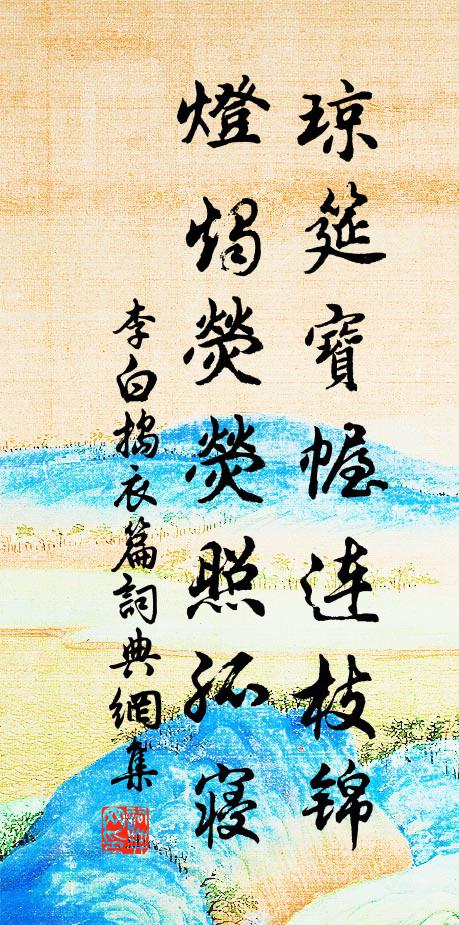 琼筵寶幄連枝錦
燈燭熒熒照孤寢
李白搗衣篇詞典網集